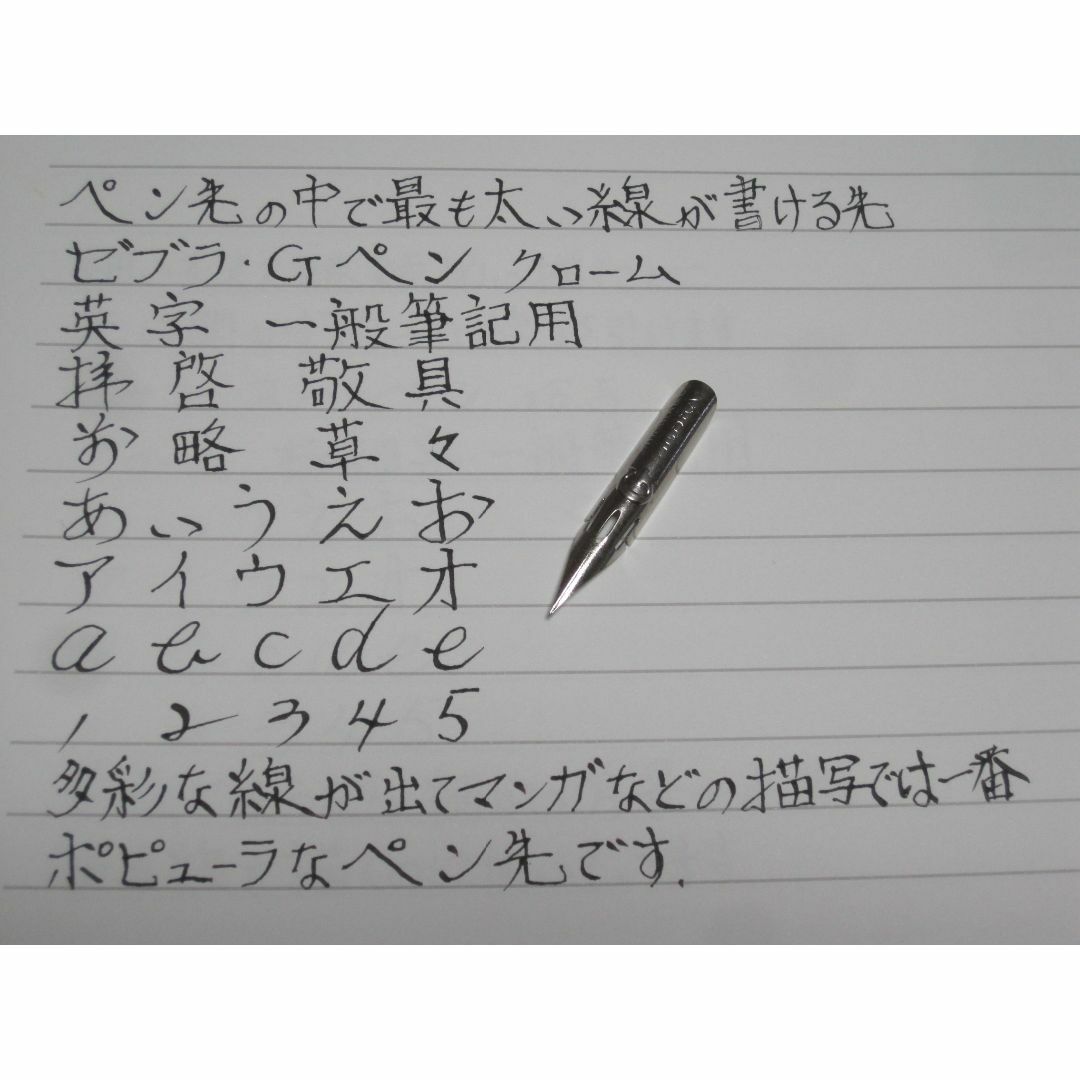 ペン先の中で最も太い線が書ける先
ゼブラ・Gペン クローム
英字 一般筆記用
拝啓 敬具
お略 草々
あいうえお
アイウエオ
a b c d e
1 2 3 4 5
多彩な線が出てマンガなどの描写では一番
ポピューラなペン先です.